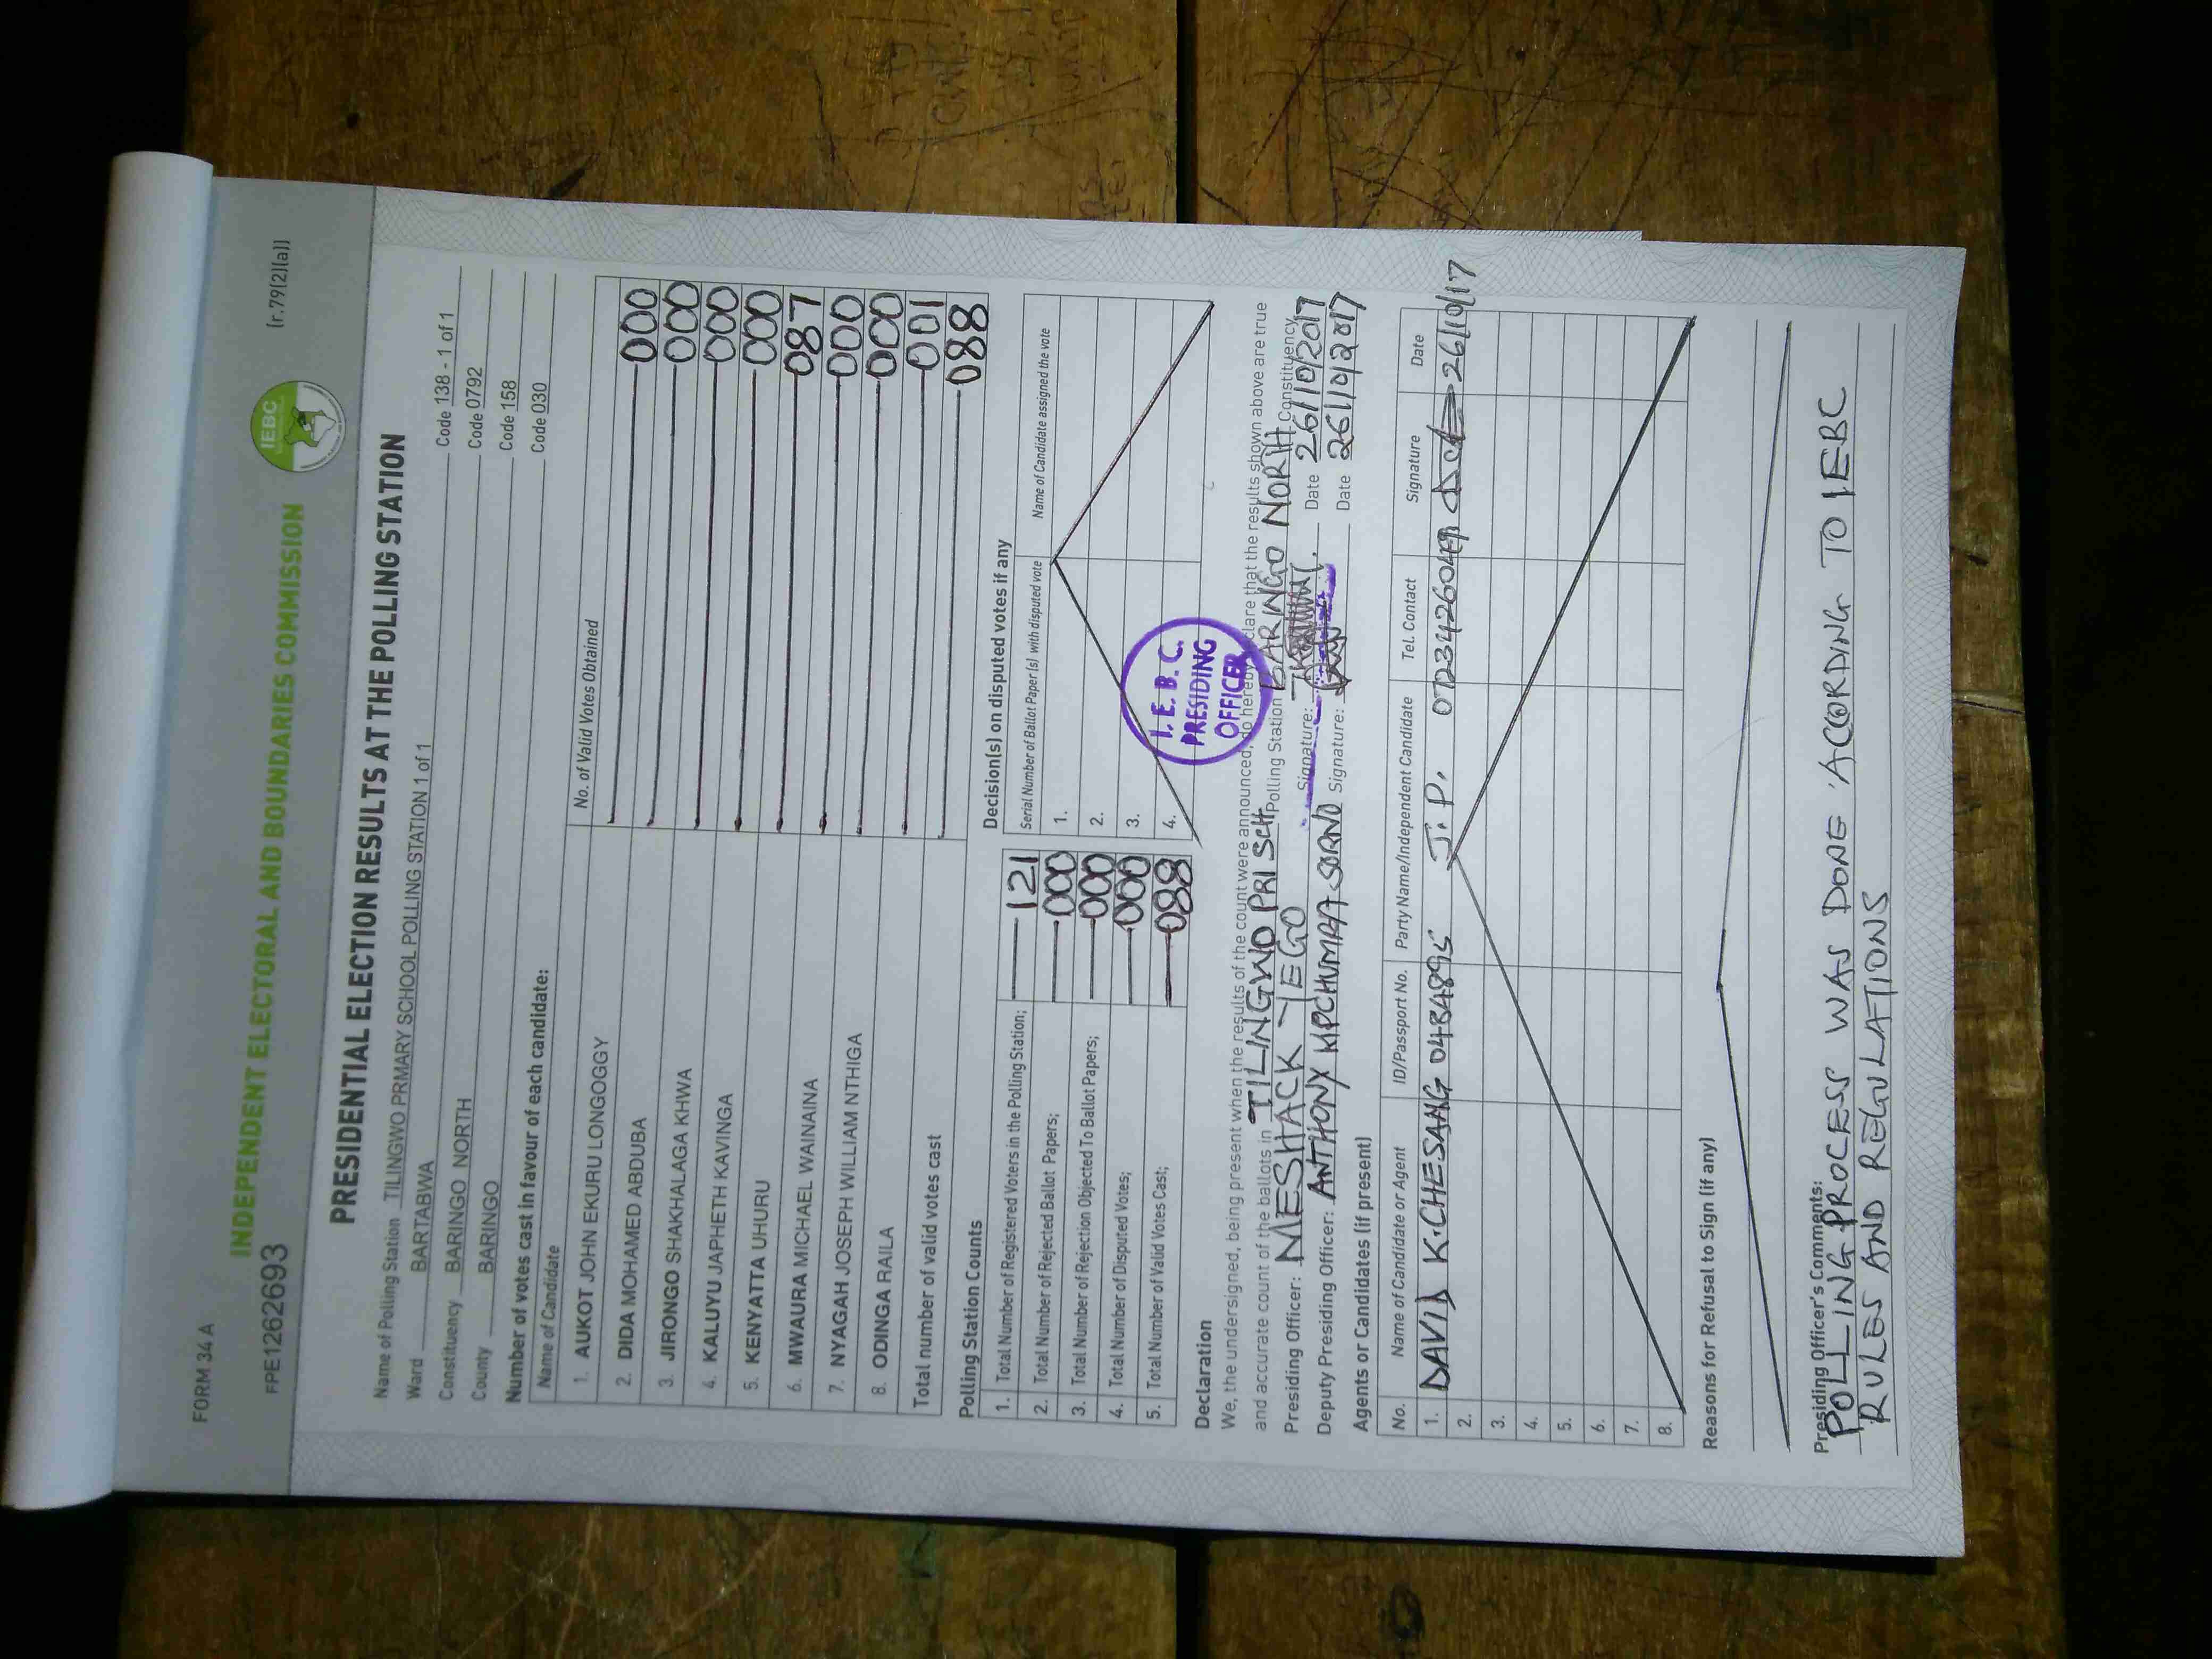 FORM 34 A
(r.79(2)(a))
IEBC
INDEPENDENT ELECTORAL AND BOUNDARIES COMMISSION
FPE1262693
PRESIDENTIAL ELECTION RESULTS AT THE POLLING STATION
Name of Polling Station TILINGWO PRMARY SCHOOL POLLING STATION 1 of 1 Code 138 - 1 of 1
Ward BARTABWA Code 0792
Constituency BARINGO NORTH Code 158
County BARINGO Code 030
Number of votes cast in favour of each candidate:
Name of Candidate No. of Valid Votes Obtained
1. AUKOT JOHN EKURU LONGOGGY 000
2. DIDA MOHAMED ABDUBA 000
3. JIRONGO SHAKHALAGA KHWA 000
4. KALUYU JAPHETH KAVINGA 000
5. KENYATTA UHURU 087
6. MWAURA MICHAEL WAINAINA 000
7. NYAGAH JOSEPH WILLIAM NTHIGA 000
8. ODINGA RAILA 001
Total number of valid votes cast 088
Polling Station Counts
1. Total Number of Registered Voters in the Polling Station; 121
2. Total Number of Rejected Ballot Papers; 000
3. Total Number of Rejection Objected To Ballot Papers; 000
4. Total Number of Disputed Votes; 000
5. Total Number of Valid Votes Cast; 088
Decision(s) on disputed votes if any
Serial Number of Ballot Paper (s) with disputed vote Name of Candidate assigned the vote
1.
2.
3.
4.
I. E. B. C.
PRESIDING
OFFICER
Declaration
We, the undersigned, being present when the results of the count were announced, do hereby declare that the results shown above are true
and accurate count of the ballots in TILINGWO PRI SCH Polling Station BARINGO NORTH Constituency
Presiding Officer: MESHACK YEGO Signature: Date 26/10/2017
Deputy Presiding Officer: ANTHONY KIPCHUMBA Signature: Date 26/10/2017
Agents or Candidates (if present)
No. Name of Candidate or Agent ID/Passport No. Party Name/Independent Candidate Tel. Contact Signature Date
1. DAVID K. CHESANG 0484895 J.P. 26/10/17
2.
3.
4.
5.
6.
7.
8.
Reasons for Refusal to Sign (if any)
Presiding Officer's Comments:
POLLING PROCESS WAS DONE ACCORDING TO IEBC
RULES AND REGULATIONS